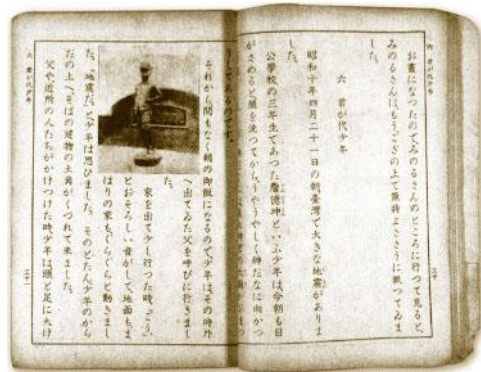 六 君が代少年
お晝になつたので、みのるさんのところに行つて見ると、
みのるさんは、もうござの上で氣持よささうに眠つてゐま
した。
六 君が代少年
昭和十年四月二十一日の朝、臺灣で大きな地震がありま
した。
公學校の三年生であつた詹德坤といふ少年は、今朝も目
がさめると、顔を洗つてから、うやうやしく神だなに向かつ
三十
りしてあるのです。
それから間もなく朝の御飯になるので、少年はその時外
へ出てゐた父を呼びに行きまし
た。
家を出て少し行つた時、「ごう。」
とおそろしい音がして、地面もま
はりの家も、ぐらぐらと動きまし
た。「地震だ。」と少年は思ひました。そのとたん、少年のから
だの上へ、そばの建物の土角がくづれて來ました。
父や近所の人たちがかけつけた時、少年は頭と足に大け
六 君が代少年
三十一